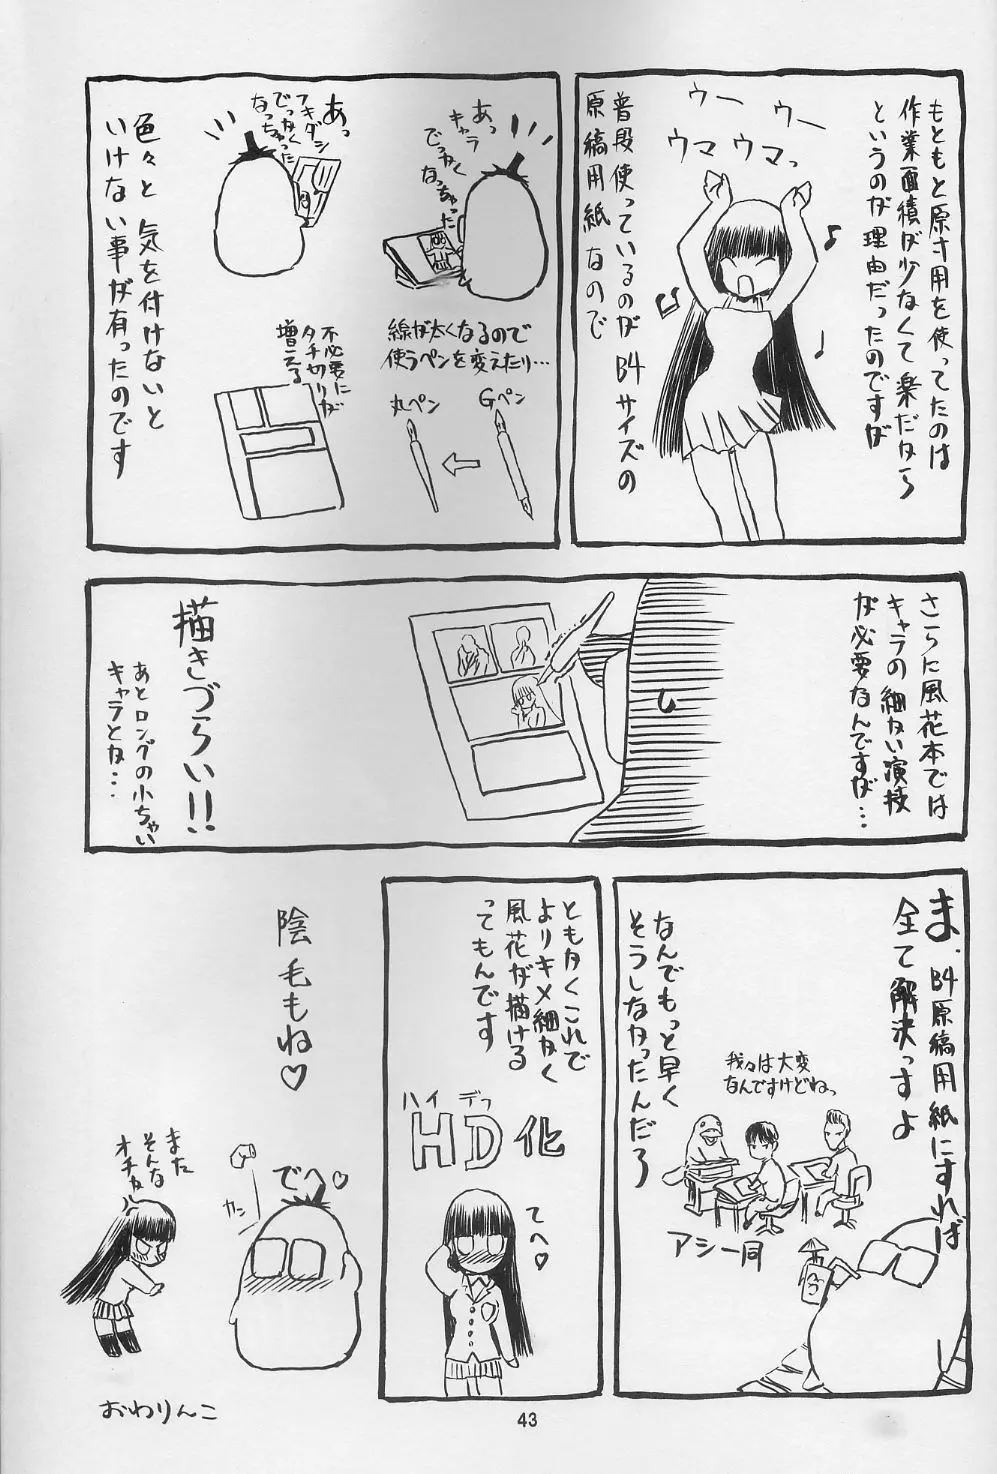 もともと原寸用を使ってたのは
作業面積が少なくて楽だから
というのが理由だったのですが
ウー
ウー
ウマウマっ
普段使っているのがB4サイズの
原稿用紙なので
あっ
キャラ
でっかく
なっちゃった
あっ
フキダシ
でっかく
なっちゃった
線が太くなるので
使うペンを変えたり…
Gペン
丸ペン
不必要に
タチ切りが
増える
色々と気を付けないと
いけない事が有ったのです
さらに風花本では
キャラの細かい演技
が必要なんですが…
描きづらい!!
あとロングの小ちゃい
キャラとか…
ま、B4原稿用紙にすれば
全て解決っすよ
なんでもっと早く
そうしなかったんだろ
我々は大変
なんですけどねっ
アシ一同
ともかくこれで
よりキメ細かく
風花が描ける
ってもんです
ハイデフ
HD化
てへ♡
陰毛もね♡
でへ♡
カン
また
そんな
オチか
おわりんこ
43